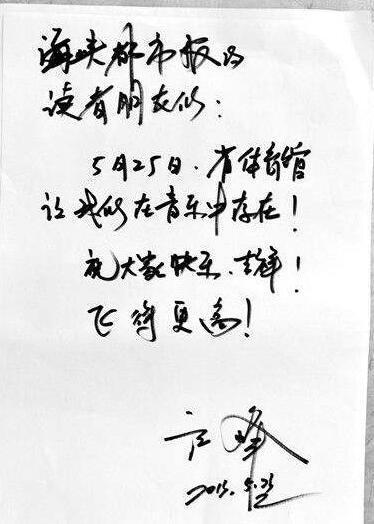 海峡都市报的
读者朋友们：
5月25日.省体育馆
让我们在音乐中存在！
祝大家快乐.吉祥！
飞得更高！
汪峰
2013.5.23